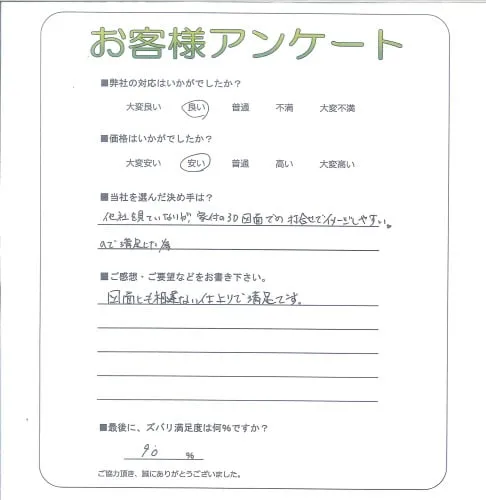 お客様アンケート
■弊社の対応はいかがでしたか？
大変良い 良い 普通 不満 大変不満
■価格はいかがでしたか？
大変安い 安い 普通 高い 大変高い
■当社を選んだ決め手は？
他社を見ていないが、受付の3D図面での打合せでイメージしやすい。
ので満足した為
■ご感想・ご要望などをお書き下さい。
図面とも相違ない仕上りで満足です。
■最後に、ズバリ満足度は何%ですか？
90 %
ご協力頂き、誠にありがとうございました。